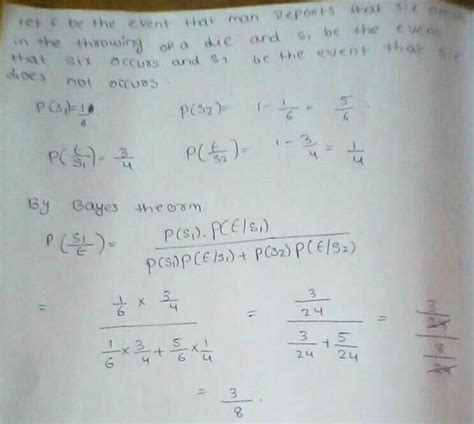 Let E be the event that man reports that six occurs
in the throwing of a die and S1 be the event
that six occurs and S2 be the event that six
does not occurs.
P(S1)=1/6 P(S2)= 1 - 1/6 = 5/6.
P(E/S1)= 3/4 P(E/S2)= 1 - 3/4 = 1/4
By Bayes theorm.
P(S1/E) = P(S1). P(E/S1) / P(S1)P(E/S1) + P(S2) P(E/S2)
= 1/6 × 3/4 / 1/6 × 3/4 + 5/6 × 1/4 = 3/24 / 3/24 + 5/24 = 3/24 / 8/24
= 3/8.